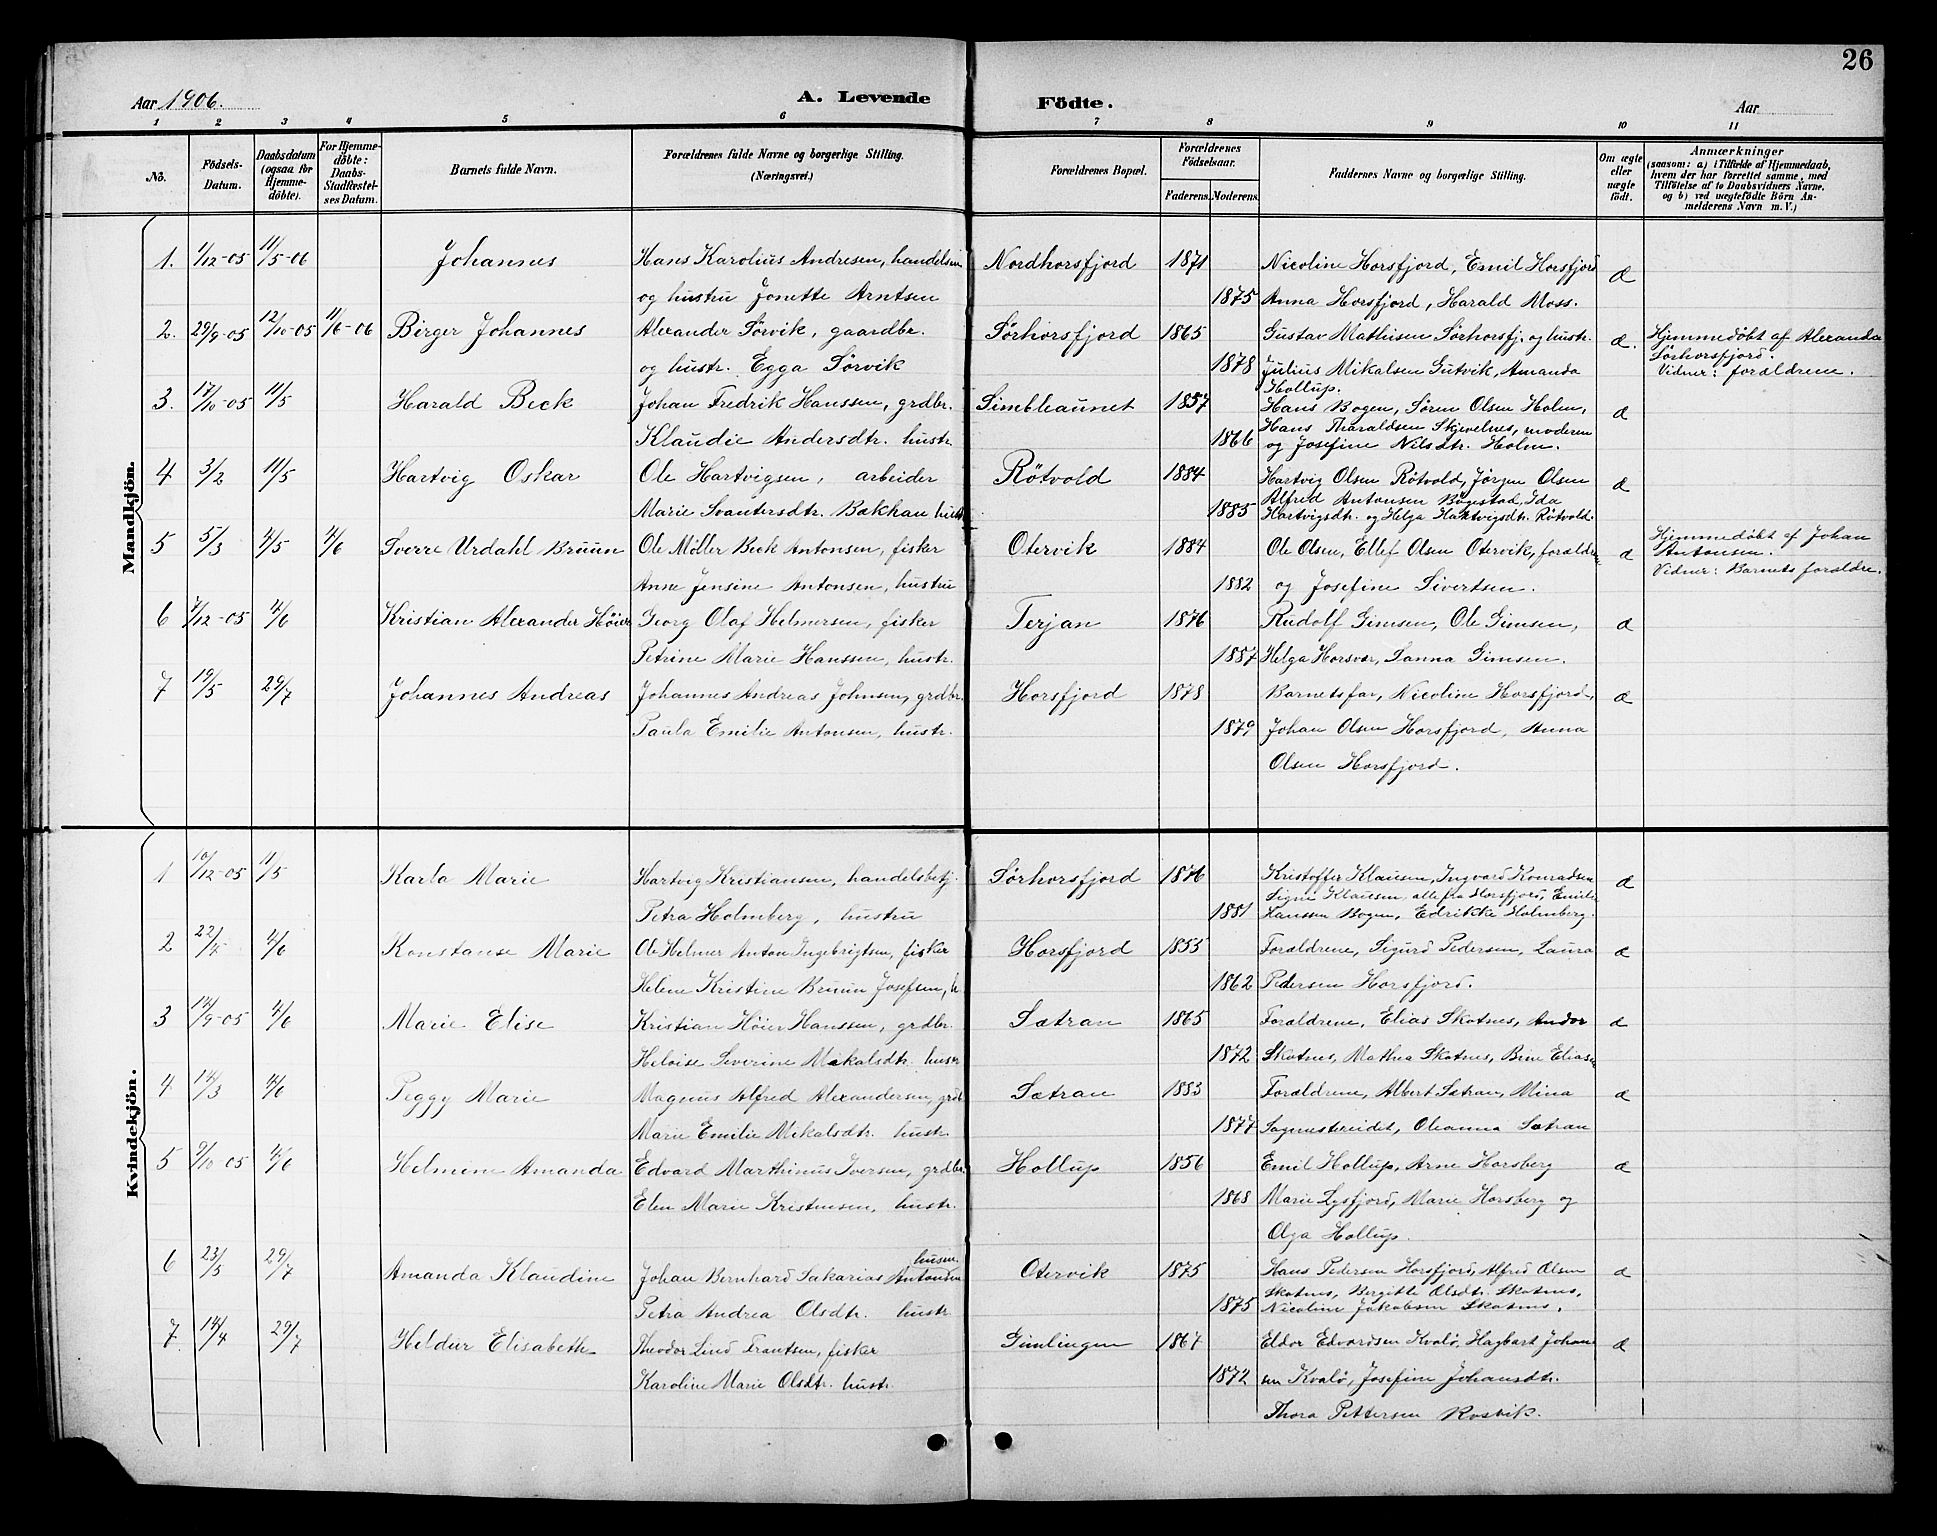 26
Aar 1906.
A. Levende Födte.
Aar
1 2 3 4 5 6 7 8 9 10 11
No.
Födsels-Datum.
Daabsdatum (ogsaa for Hjemmedöbte).
For Hjemmedöbte: Daabs-Stadfæstelses Datum.
Barnets fulde Navn.
Forældrenes fulde Navne og borgerlige Stilling. (Næringsvei.)
Forældrenes Bopæl.
Forældrenes Födselsaar.
Faderens. Moderens.
Faddernes Navne og borgerlige Stilling.
Om ægte eller uægte födt.
Anmærkninger
(saasom: a) i Tilfælde af Hjemmedaab, hvem der har forrettet samme, med Tilföielse af to Daabsvidners Navne, og b) ved uægtefödte Börn Anmelderens Navn m. V.)
Mandkjön.
1. 1/12-05 11/5-06 Johannes Hans Karolius Andresen, handelsm Nordhorsfjord 1871 Nicoline Horsfjord, Emil Horsfjord æ
og hustru Jonette Arntsen 1875 Anna Horsfjord, Harald Moss.
2. 29/9-05 12/10-05 11/6-06 Birger Johannes Alexander Sørvik, gaardbr. Sørhorsfjord 1865 Gustav Mathisen Sørhorsfj. og hustr. æ. Hjemmedøbt af Alexander
Sørhorsfjord.
og hustr. Egga Sørvik 1878 Julius Mikalsen Gutvik, Amanda Vidner: forældrene.
Hollup.
3. 17/10-05 11/5 Harald Beck Johan Fredrik Hanssen, grdbr. Simbleaunet 1857 Hans Bogen, Søren Olsen Holm, æ
Hans Haraldsen Skjevelnes, moderen
Klaudie Andersdtr. hustr. 1866 og Josefine Nilsdtr. Holm.
4 3/2 11/5 Hartvig Oskar Ole Hartvigsen, arbeider Røtvold 1884 Hartvig Olsen Røtvold, Jørgen Olsen æ
Alfred Antonsen Bøgestad, Ida
Marie Svantersdtr. Bækhau hustr 1885 Hartvigsdtr. og Helga Hartvigsdtr. Røtvold.
5 5/3 4/5 4/6 Sverre Urdahl Bruun Ole Møller Beck Antonsen, fisker Otervik 1884 Ole Olsen, Ellef Olsen Otervik, forældrene æ Hjemmedøbt af Johan
Antonsen.
Anne Jensine Antonsen, hustru 1882 og Josefine Sivertsen. Vidner: Barnets forældre.
6 7/12-05 4/6 Kristian Alexander Høier Georg Olaf Helmersen, fisker Terjan 1876 Rudolf Gimsen, Ole Gimsen, æ
Petrine Marie Hanssen, hustr. 1887 Helga Horsvær, Sanna Gimsen.
7 19/5 29/7 Johannes Andreas Johannes Andreas Johnsen, grdbr. Horsfjord 1878 Barnets far, Nicoline Horsfjord, æ
Paula Emilie Antonsen, hustr. 1879 Johan Olsen Horsfjord, Anna
Olsen Horsfjord.
Kvindekjön.
1 10/12-05 11/5 Karla Marie Hartvig Kristiansen, handelsbetj. Sørhorsfjord 1876 Kristoffer Klausen, Ingvard Konradsen æ
Signe Klausen, alle fra Horsfjord, Emilie
Petra Holmberg, hustru 1881 Hanssen Bogen, Edrikke Holmberg.
2 22/4 4/6 Konstanse Marie Ole Helmer Anton Ingebrigtsen, fisker Horsfjord 1855 Forældrene, Sigurd Pedersen, Laura æ
Helene Kristine Bruun Josefsen, h. 1862 Pedersen Horsfjord.
3 14/9-05 4/6 Marie Elise Kristian Høier Hanssen, grdbr. Sætran 1865 Forældrene, Elias Skotnes, Andor æ
Heloise Severine Mikalsdtr. hustr 1872 Skotnes, Mathea Skotnes, Brine Eliasen
4 14/3 4/6 Peggy Marie Magnus Alfred Alexandersen, grdb. Sætran 1883 Forældrene, Albert Sætran, Mina æ
Marie Emilie Mikalsdtr. hustr. 1877 Sagmestereidet, Oleanna Sætran
5 9/10-05 4/6 Helmine Amanda Edvard Marthinus Iversen, grdbr. Hollup 1856 Emil Hollup, Arne Horsberg æ
Elen Marie Kristensen, hustr. 1868 Marie Lysfjord, Marie Horsberg og
Olga Hollup.
husm.
6 23/5 29/7 Amanda Klaudine Johan Bernhard Sakarias Antonsen Otervik 1875 Hans Pedersen Horsfjord, Alfred Olsen æ
Skotnes, Bergitte Olsdtr. Skotnes,
Petra Andrea Olsdtr. hustr. 1875 Nicoline Jakobsen Skotnes.
7 14/4 29/7 Heldur Elisabeth Theodor Lind Frantsen, fisker Gimlingen 1867 Eldor Edvardsen Kvalø, Hagbart Johan æ
Karoline Marie Olsdtr. hustr. 1872 sen Kvalø, Josefine Johansdtr.
Thora Pettersen Rosvik.